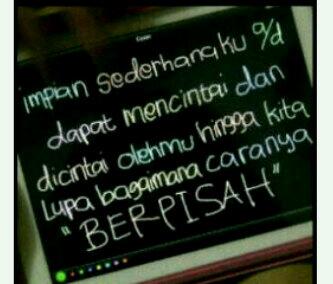 impian sederhanaku a/d
dapat mencintai dan
dicintai olehmu hingga kita
Lupa bagaimana caranya
"BERPISAH"